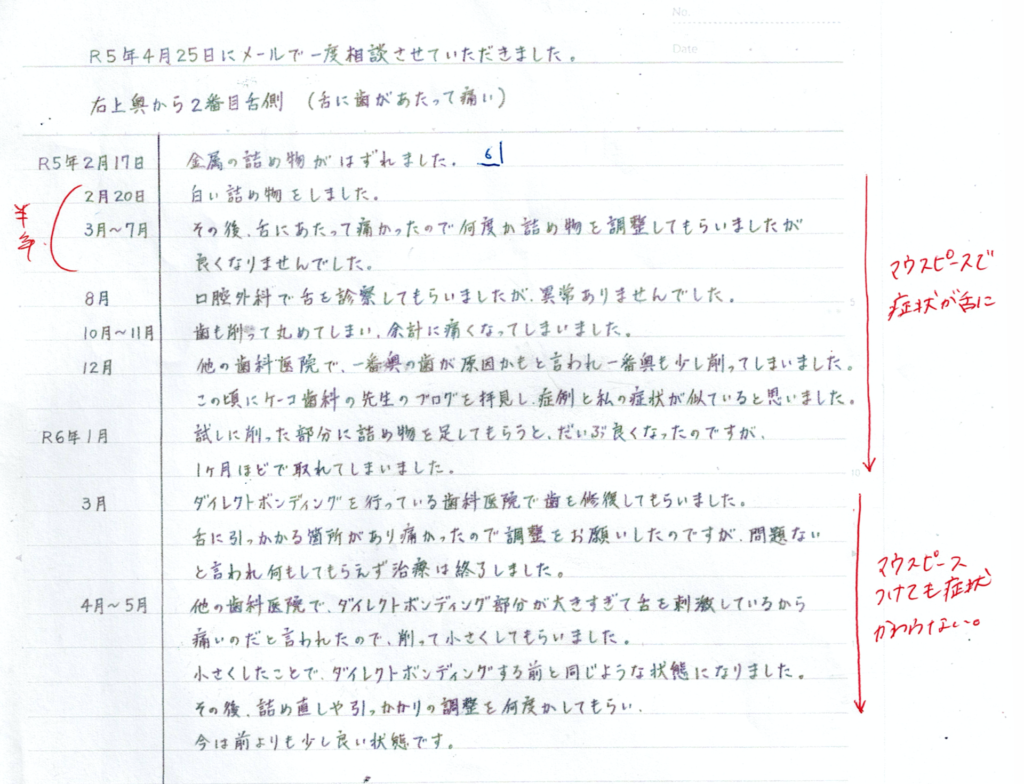 No.
Date
R5年4月25日にメールで一度相談させていただきました。
右上奥から2番目舌側 (舌に歯があたって痛い)
R5年2月17日 金属の詰め物がはずれました。 6
2月20日 白い詰め物をしました。
半年
3月〜7月 その後、舌にあたって痛かったので何度か詰め物を調整してもらいましたが
良くなりませんでした。
8月 口腔外科で舌を診察してもらいましたが、異常ありませんでした。
10月〜11月 歯も削って丸めてしまい、余計に痛くなってしまいました。
12月 他の歯科医院で、一番奥の歯が原因かもと言われ一番奥も少し削ってしまいました。
この頃にケーコ歯科の先生のブログを拝見し、症例と私の症状が似ていると思いました。
R6年1月 試しに削った部分に詰め物を足してもらうと、だいぶ良くなったのですが、
1ヶ月ほどで取れてしまいました。
マウスピースで
症状が舌に
3月 ダイレクトボンディングを行っている歯科医院で歯を修復してもらいました。
舌に引っかかる箇所があり痛かったので調整をお願いしたのですが、問題ない
と言われ何もしてもらえず治療は終了しました。
4月〜5月 他の歯科医院で、ダイレクトボンディング部分が大きすぎて舌を刺激しているから
痛いのだと言われたので、削って小さくしてもらいました。
小さくしたことで、ダイレクトボンディングする前と同じような状態になりました。
その後、詰め直しや引っかかりの調整を何度かしてもらい、
今は前よりも少し良い状態です。
マウスピース
つけても症状
かわらない。